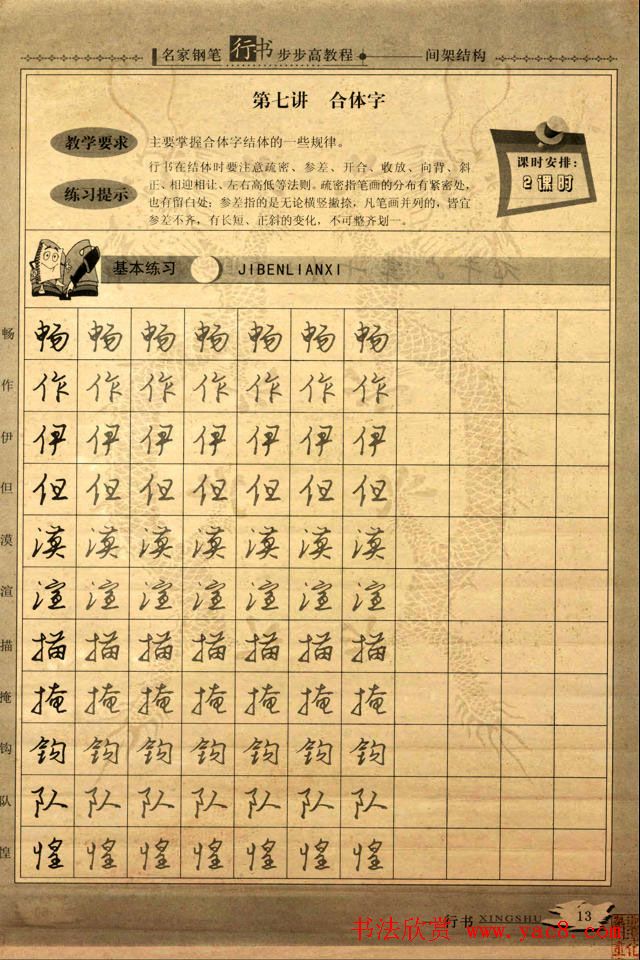 名家钢笔行书步步高教程 间架结构
第七讲 合体字
教学要求 主要掌握合体字结体的一些规律。
练习提示 行书在结体时要注意疏密、参差、开合、收放、向背、斜
正、相迎相让、左右高低等法则。疏密指笔画的分布有紧密处,
也有留白处;参差指的是无论横竖撇捺,凡笔画并列的,皆宜
参差不齐,有长短、正斜的变化,不可整齐划一。
课时安排:
2课时
基本练习 JIBENLIANXI
畅 畅 畅 畅 畅 畅 畅 畅
作 作 作 作 作 作 作 作
伊 伊 伊 伊 伊 伊 伊 伊
但 但 但 但 但 但 但 但
漠 漠 漠 漠 漠 漠 漠 漠
渲 渲 渲 渲 渲 渲 渲 渲
描 描 描 描 描 描 描 描
掩 掩 掩 掩 掩 掩 掩 掩
钩 钩 钩 钩 钩 钩 钩 钩
队 队 队 队 队 队 队 队
惶 惶 惶 惶 惶 惶 惶 惶
行书 XINGSHU 13
书法欣赏 www.yac8.com